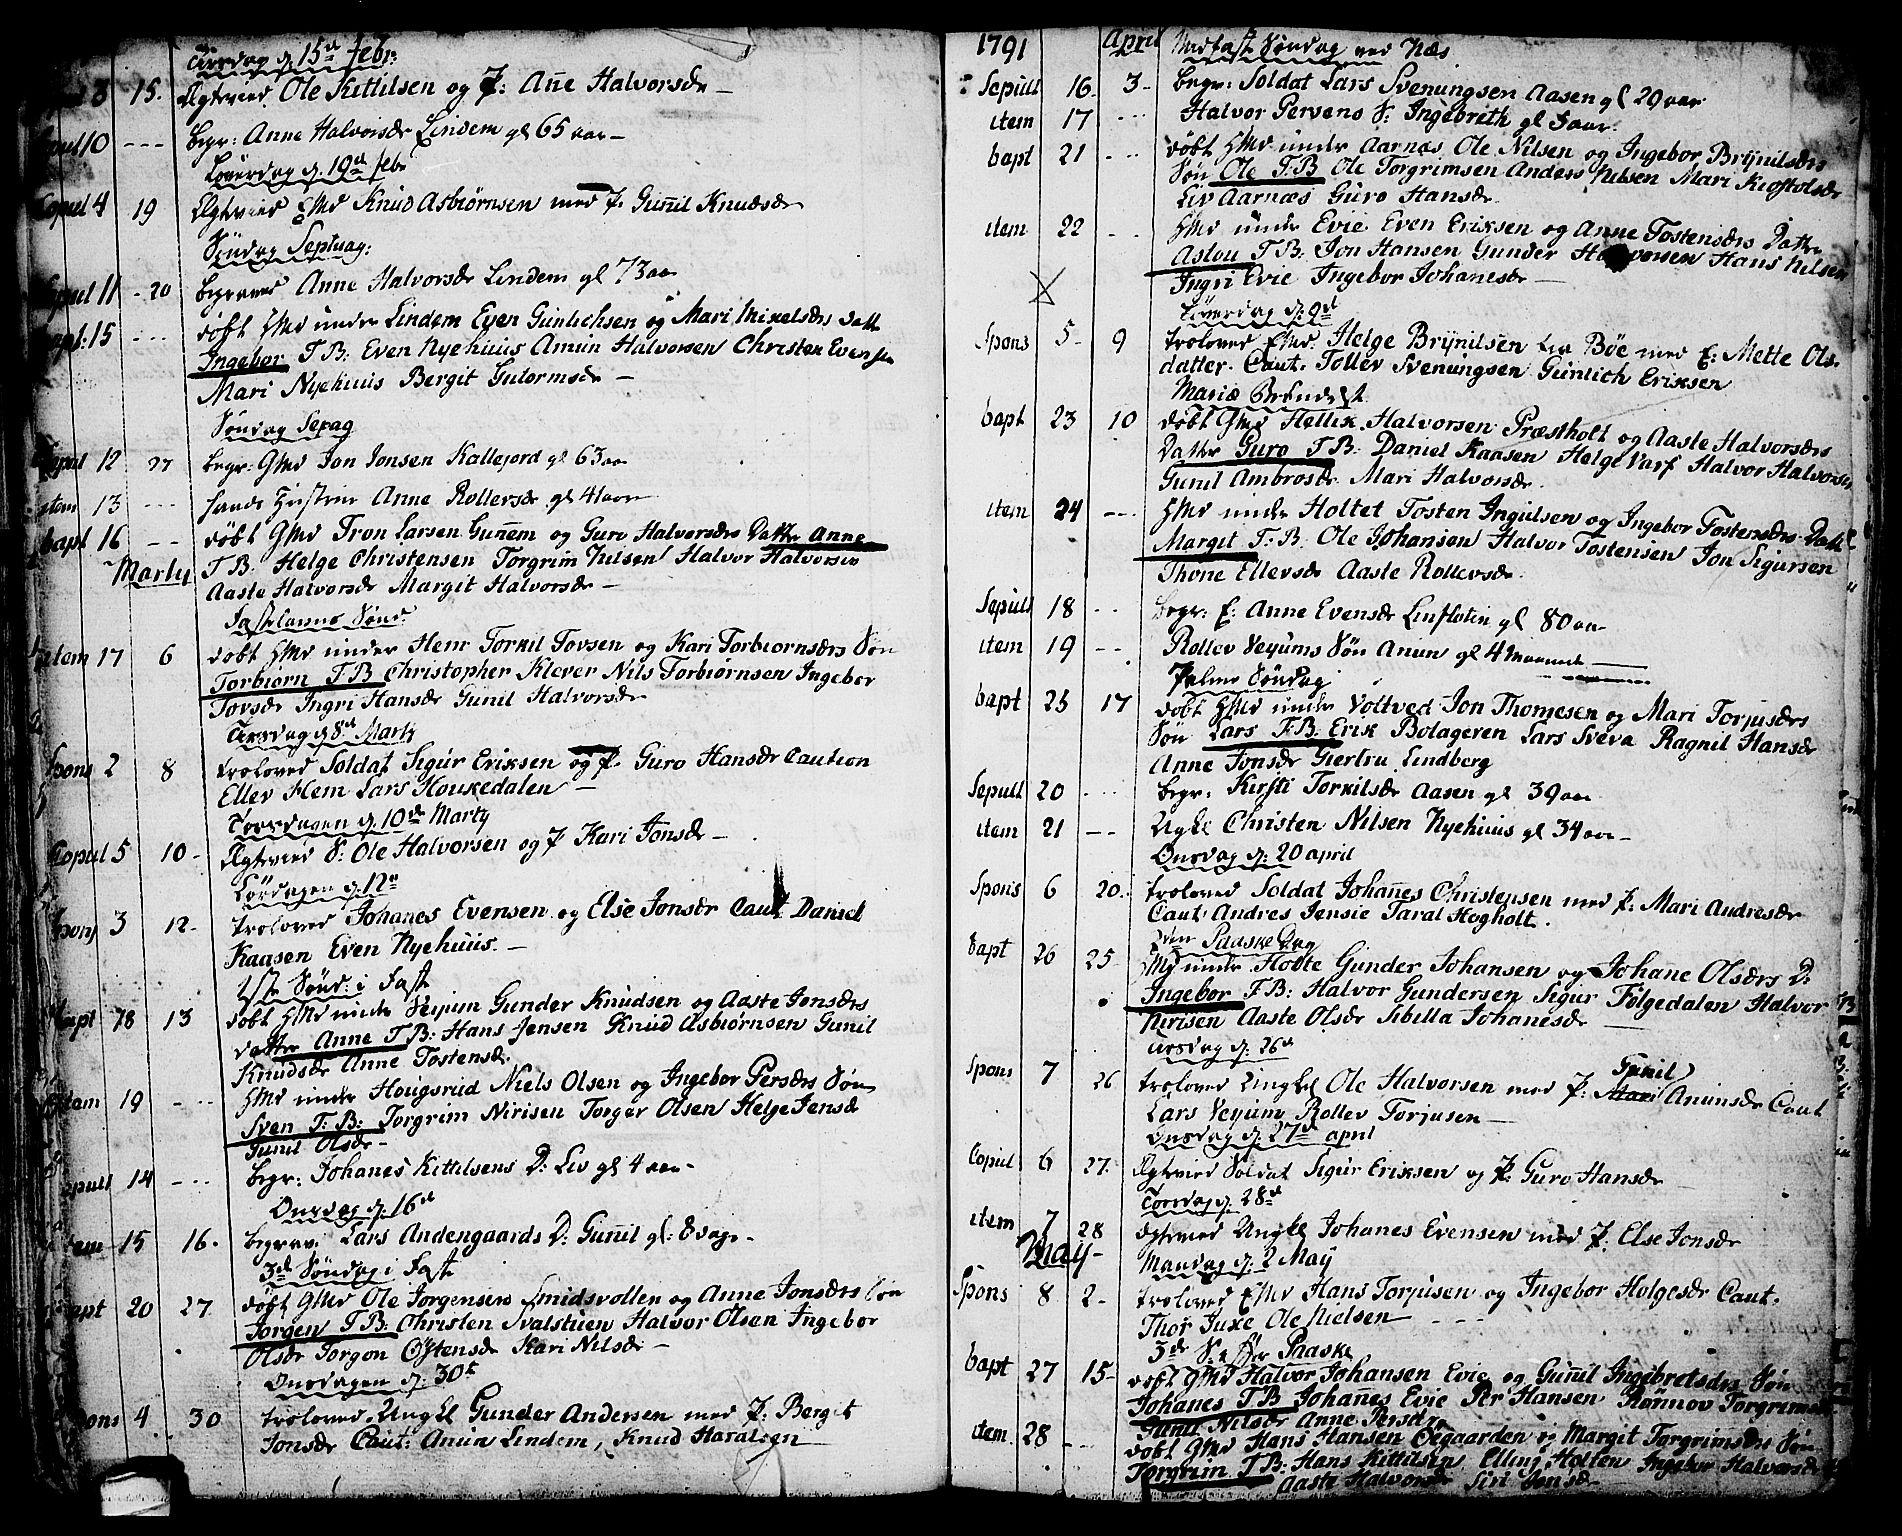 Tirsdag d. 15d febr:
3 15. Ægtevied Ole Kittilsen og P: Añe Halvorsdr –
Sepul 10 --- begr: Anne Halvorsdr Lindem gl 65 aar –
Løverdag d. 19d febr
Copul 4 19 Ægtevied EMd Knud Asbiørnsen med P. Guñil Knudsdr
Søndag Septuag:
Sepul 11 - 20 begraved Anne Halvorsdr Lindem gl 73 aar
bapt: 15 --- døbt GMd under Lindem Even Gunlichsen og Mari Nixelsdrs datt
Ingebor T B: Even Nyehuus Amun Halvorsen Christen Evensen
Mari Nyehuus Bergit Gutormsdr –
Søndag Sexag
Sepul 12 27 begr: GMd Jon Jonsen Kallejord gl 63 aar
item 13 --- hands Hustrue Anne Rollevsdr gl 41 aar
bapt 16 -- døbt GMd Tron Larsen Guñem og Guro Halvorsdrs Datter Anne
Marty T B. Helge Christensen Torgrim Nilsen Halvor Halvorsen
Aaste Halvorsdr Margit Halvorsdr –
Fastelavns Sønd:
item 17 6 døbt HMd under Hem Torkil Tovsen og Kari Torbiornsdrs Søn
Torbiørn T B Christopher Klever Nils Torbiørnsen Ingebor
Tovsdr Ingri Hansdr Gunil Halvorsdr
Tirsdag d 8d Marty
Spons 2 8 troloved Soldat Sigur Eriksen og P. Guro Hansdr Caution
Ellev Hem Lars Houkedalen –
Torsdagen d. 10de Marty
Copul 5 10 - Ægtevied S: Ole Halvorsen og P Kari Jonsdr –
Lørdagen d. 12d
Spons 3 12. troloved Johanes Evensen og Else Jonsdr Caut Daniel
Kaasen Even Nyehuus. –
1ste Sønd: i Fast
bapt 18 13 døbt HMd under Vejum Gunder Knudsen og Aaste Jonsdrs
datter Anne T B: Hans Jensen Knud Asbiørnsen Gunil
Knudsdr Anne Tostensdr.
item 19 --- HMd under Hougsrud Niels Olsen og Ingebor Persdrs Søn
Sven T. B: Torgrim Nirisen Torger Olsen Helge Jensdr
Gunil Olsdr –
Sepull 14 --- Begr: Johanes Kittilsens D: Liv gl 4 aar –
Onsdag d. 16d
item 15 16. begrav: Lars Andengaards D: Guñil gl: 8 dage –
3d Søndag i Fast
bapt 20 27 døbt GMd Ole Jorgensen Smidsvollen og Anne Jonsdrs Søn
Jorgen T B: Christen Svalstuen Halvor Olsen Ingebor
Olsdr Jorgon Østensdr Kari Nilsdr –
Onsdagen d. 30t
Spons 4. 30 troloved Ungkl Gunder Andersen med P: Bergit
Jonsdr Caut: Amun Lindem, Knud Haralsen
1791 April Midfast Søndag ved Næs
Sepull 16 3 – begr: Soldat Lars Svenungsen Aasen gl 29 aar
item 17 --- Halvor Persens S: Ingebreth gl 5 aar.
bapt 21 --- døbt HMd under Aarnæs Ole Nilsen og Ingebor Brynilsdrs
Søn Ole T. B Ole Torgrimsen Anders Nilsen Mari Kiostolsdr
Liv Aarnæs Guro Hansdr.
item 22 -- HMd under Evie Even Eriksen og Anne Tostensdrs Datter
Aslou T B: Jon Hansen Gunder Halvorsen Hans Nilsen
Ingri Evie Ingebor Johanesdr –
Løverdag d: 9d
Spons 5 – 9 troloved EMd: Helge Brynilsen Lia Bøe med E: Mette Ols-
datter. Caut. Tollev Svenungsen Gunlich Eriksen
Mariæ Bebudelse
bapt 23 10 døbt GMd Hellik Halvorsen Præstholt og Aaste Halvorsdrs
Datter Guro T B: Daniel Kaasen Helge Varf Halvor Halvorsen
Gunil Ambrosdr Mari Halvorsdr.
item 24 --- HMd under Holtet Tosten Ingulsen og Ingebor Tostensdrs Datt
Margit T. B. Ole Johansen Halvor Tostensen Jon Sigursen
Thone Ellevsdr Aaste Rollevsdr.
Sepull 18 -- begr: E: Anne Evensdr Linflotin gl 80 aar
item 19 -- Rollev Vejums Søn Amun gl 4 Maaned
Palme Søndag
bapt 25 17 døbt HMd under Voltved Jon Thomesen og Mari Torjusdrs
Søn Lars T. B: Erik Bolageren Lars Sveva Ragnil Hansdr
Anne Jonsdr Giertru Lindberg
Sepull 20 --- begr: Kirsti Torkilsdr Aasen gl 39 aar
item 21 --- Ugkl Christen Nilsen Nyehuus gl 34 aar –
Onsdag d: 20 april
Spons 6 20. troloved Soldat Johañes Christensen med P: Mari Andresdr
Caut: Andres Jensie Taral Hogholt.
Paaske Dag
bapt 26 25 – HMd under Hovte Gunder Johansen og Johane Olsdrs D:
Ingebor T B: Halvor Gundersen Sigur Folgedalen Halvor
Nirisen Aaste Olsdr Sibilla Johanesdr
tirsdag d: 26d
Spons 7 26 troloved Ungkl Ole Halvorsen med P: Mari Gunil Amunsdr Caut
Lars Vejum Rollev Torjusen –
Onsdag d. 27d april
Copul 6 27. Ægtevied Soldat Sigur Eriksen og P: Guro Hansdr
Torsdag d. 28d
item 7 28 ægtevied Ungkl Johanes Evensen med P. Else Jonsdr
May – Mandag d: 2 May
Spons 8 2 – troloved EMd Hans Torjusen og Ingebor Holgesdr Caut.
Thor Juxe Ole Nielsen – – –
3de S: efter Paaske
bapt 27 15 – døbt GMd Halvor Johansen Evie og Guñil Ingebretsdrs Søn
Johanes T B Johañes Evie Per Hansen Rønnov Torgrimsdr
Gunil Nilsdr Anne Persdr
item 28 --- døbt GMd Hans Hansen Oegaarden og Margit Torgrimsdrs Søn
Torgrim T B: Hans Kittilsen Elling Holten Ingebor Halvorsdr
Aaste Halvorsdr Siri Jonsdr